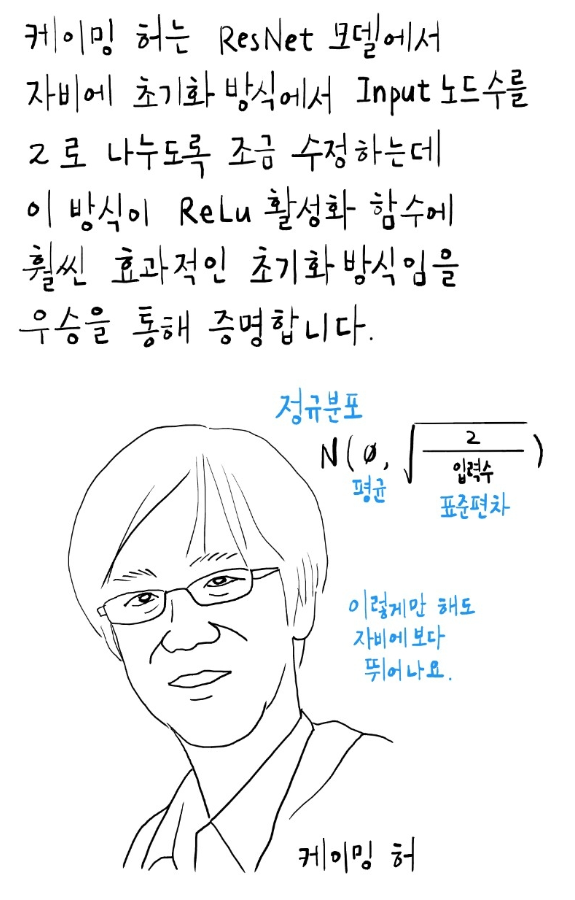 케이밍 허는 ResNet 모델에서
자비에 초기화 방식에서 Input 노드수를
2로 나누도록 조금 수정하는데
이 방식이 ReLu 활성화 함수에
훨씬 효과적인 초기화 방식임을
우승을 통해 증명합니다.
정규분포
N(0, √2/입력수)
평균 표준편차
이렇게만 해도
자비에보다
뛰어나요.
케이밍 허